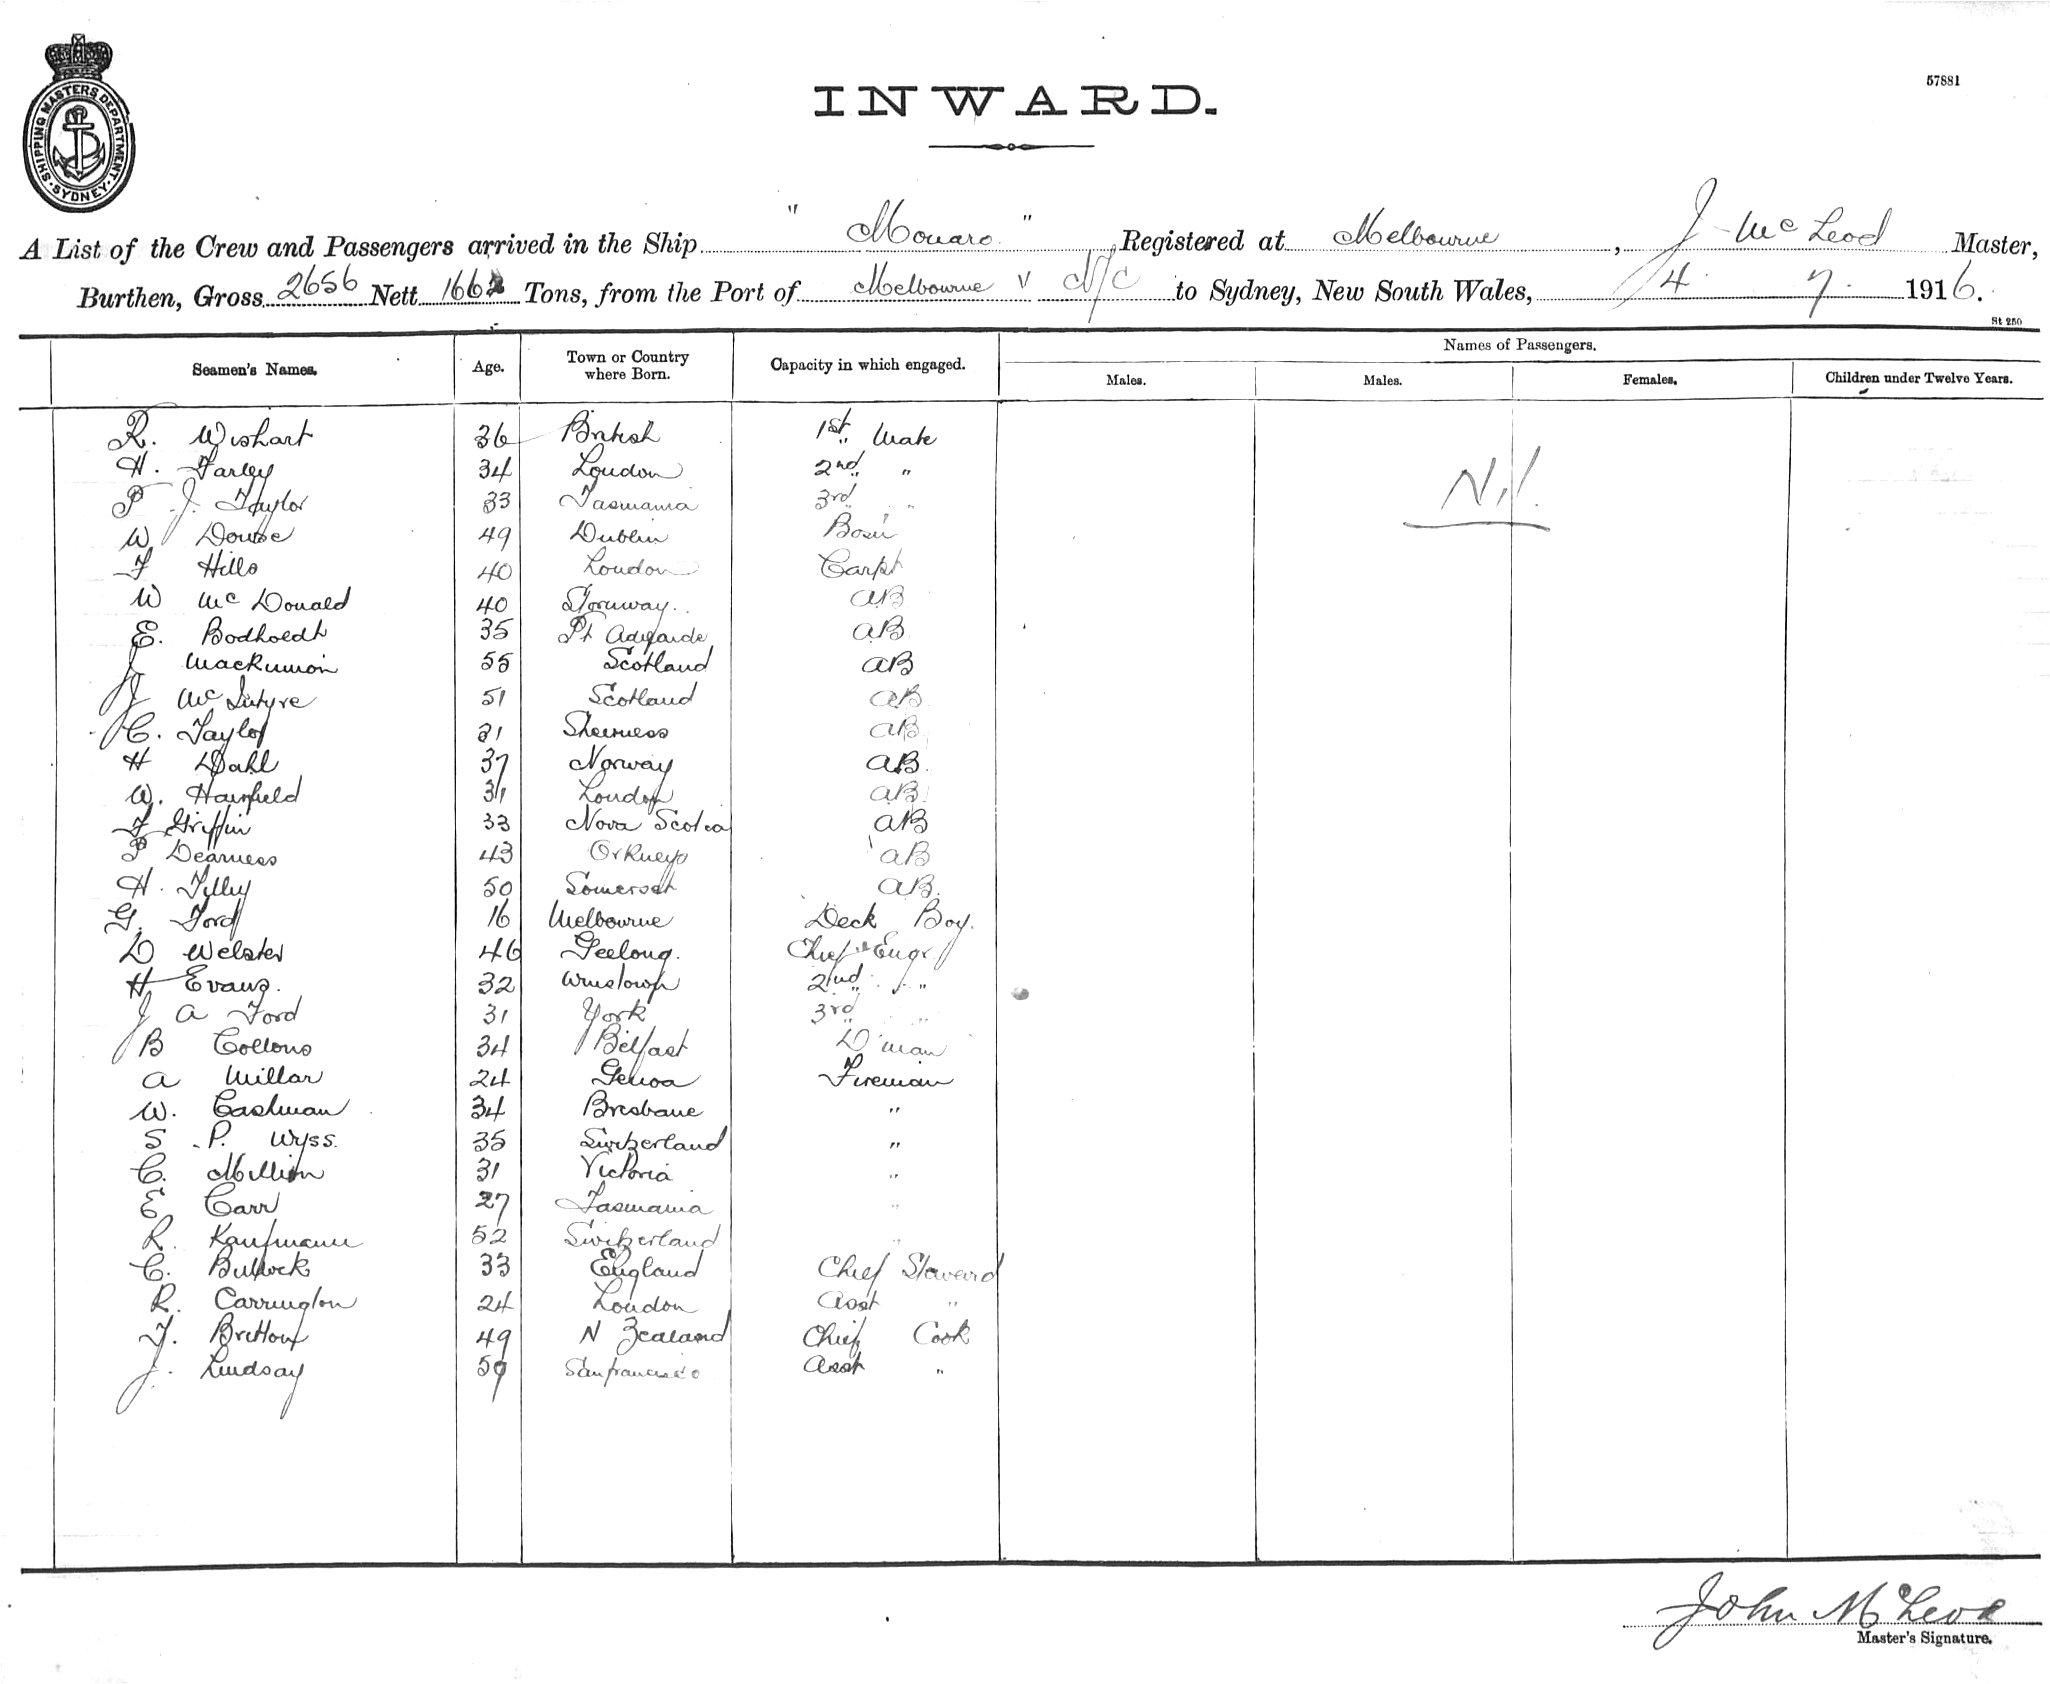 57881
SHIPPING MASTERS DEPARTMENT. SYDNEY.
INWARD.
A List of the Crew and Passengers arrived in the Ship " Monaro " , Registered at Melbourne , J McLeod Master,
Burthen, Gross 2656 Nett 1662 Tons, from the Port of Melbourne v N/C to Sydney, New South Wales, 4 7. 1916.
St 250
Seamen's Names. Age. Town or Country where Born. Capacity in which engaged. Names of Passengers.
Males. Males. Females. Children under Twelve Years.
R. Wishart 36 British 1st Mate
H. Farley 34 London 2nd "
Nil.
P J. Taylor 33 Tasmania 3rd "
W Dowse 49 Dublin Bosn
F Hills 40 London Carpt
W McDonald 40 Stornway. AB
E. Bodhoedt 35 Pt Adelaide AB
J MacKinnon 55 Scotland AB
J McIntyre 51 Scotland AB
C. Taylor 31 Sheerness AB
H Dahl 37 Norway AB.
W. Hainfield 31 London AB
F Griffin 33 Nova Scotia AB
P Dearness 43 Orkneys AB
H. Tilley 50 Somerset AB.
G. Ford 16 Melbourne Deck Boy.
D Webster 46 Geelong. Chief Engr
H Evans. 32 Wmstown 2nd "
J A Ford 31 York 3rd "
B Collons 34 Belfast D'man
A Millar 24 Genoa Fireman
W. Cashman 34 Brisbane "
S. P. Wyss. 35 Switzerland "
C. Million 31 Victoria "
E Carr 27 Tasmania "
R. Kaufmann 52 Switzerland "
C. Bullock 33 England Chief Steward
R. Carrington 24 London Asst "
T. Britton 49 N Zealand Chief Cook
J. Lindsay 59 Sanfrancisco Asst "
John McLeod
Master's Signature.